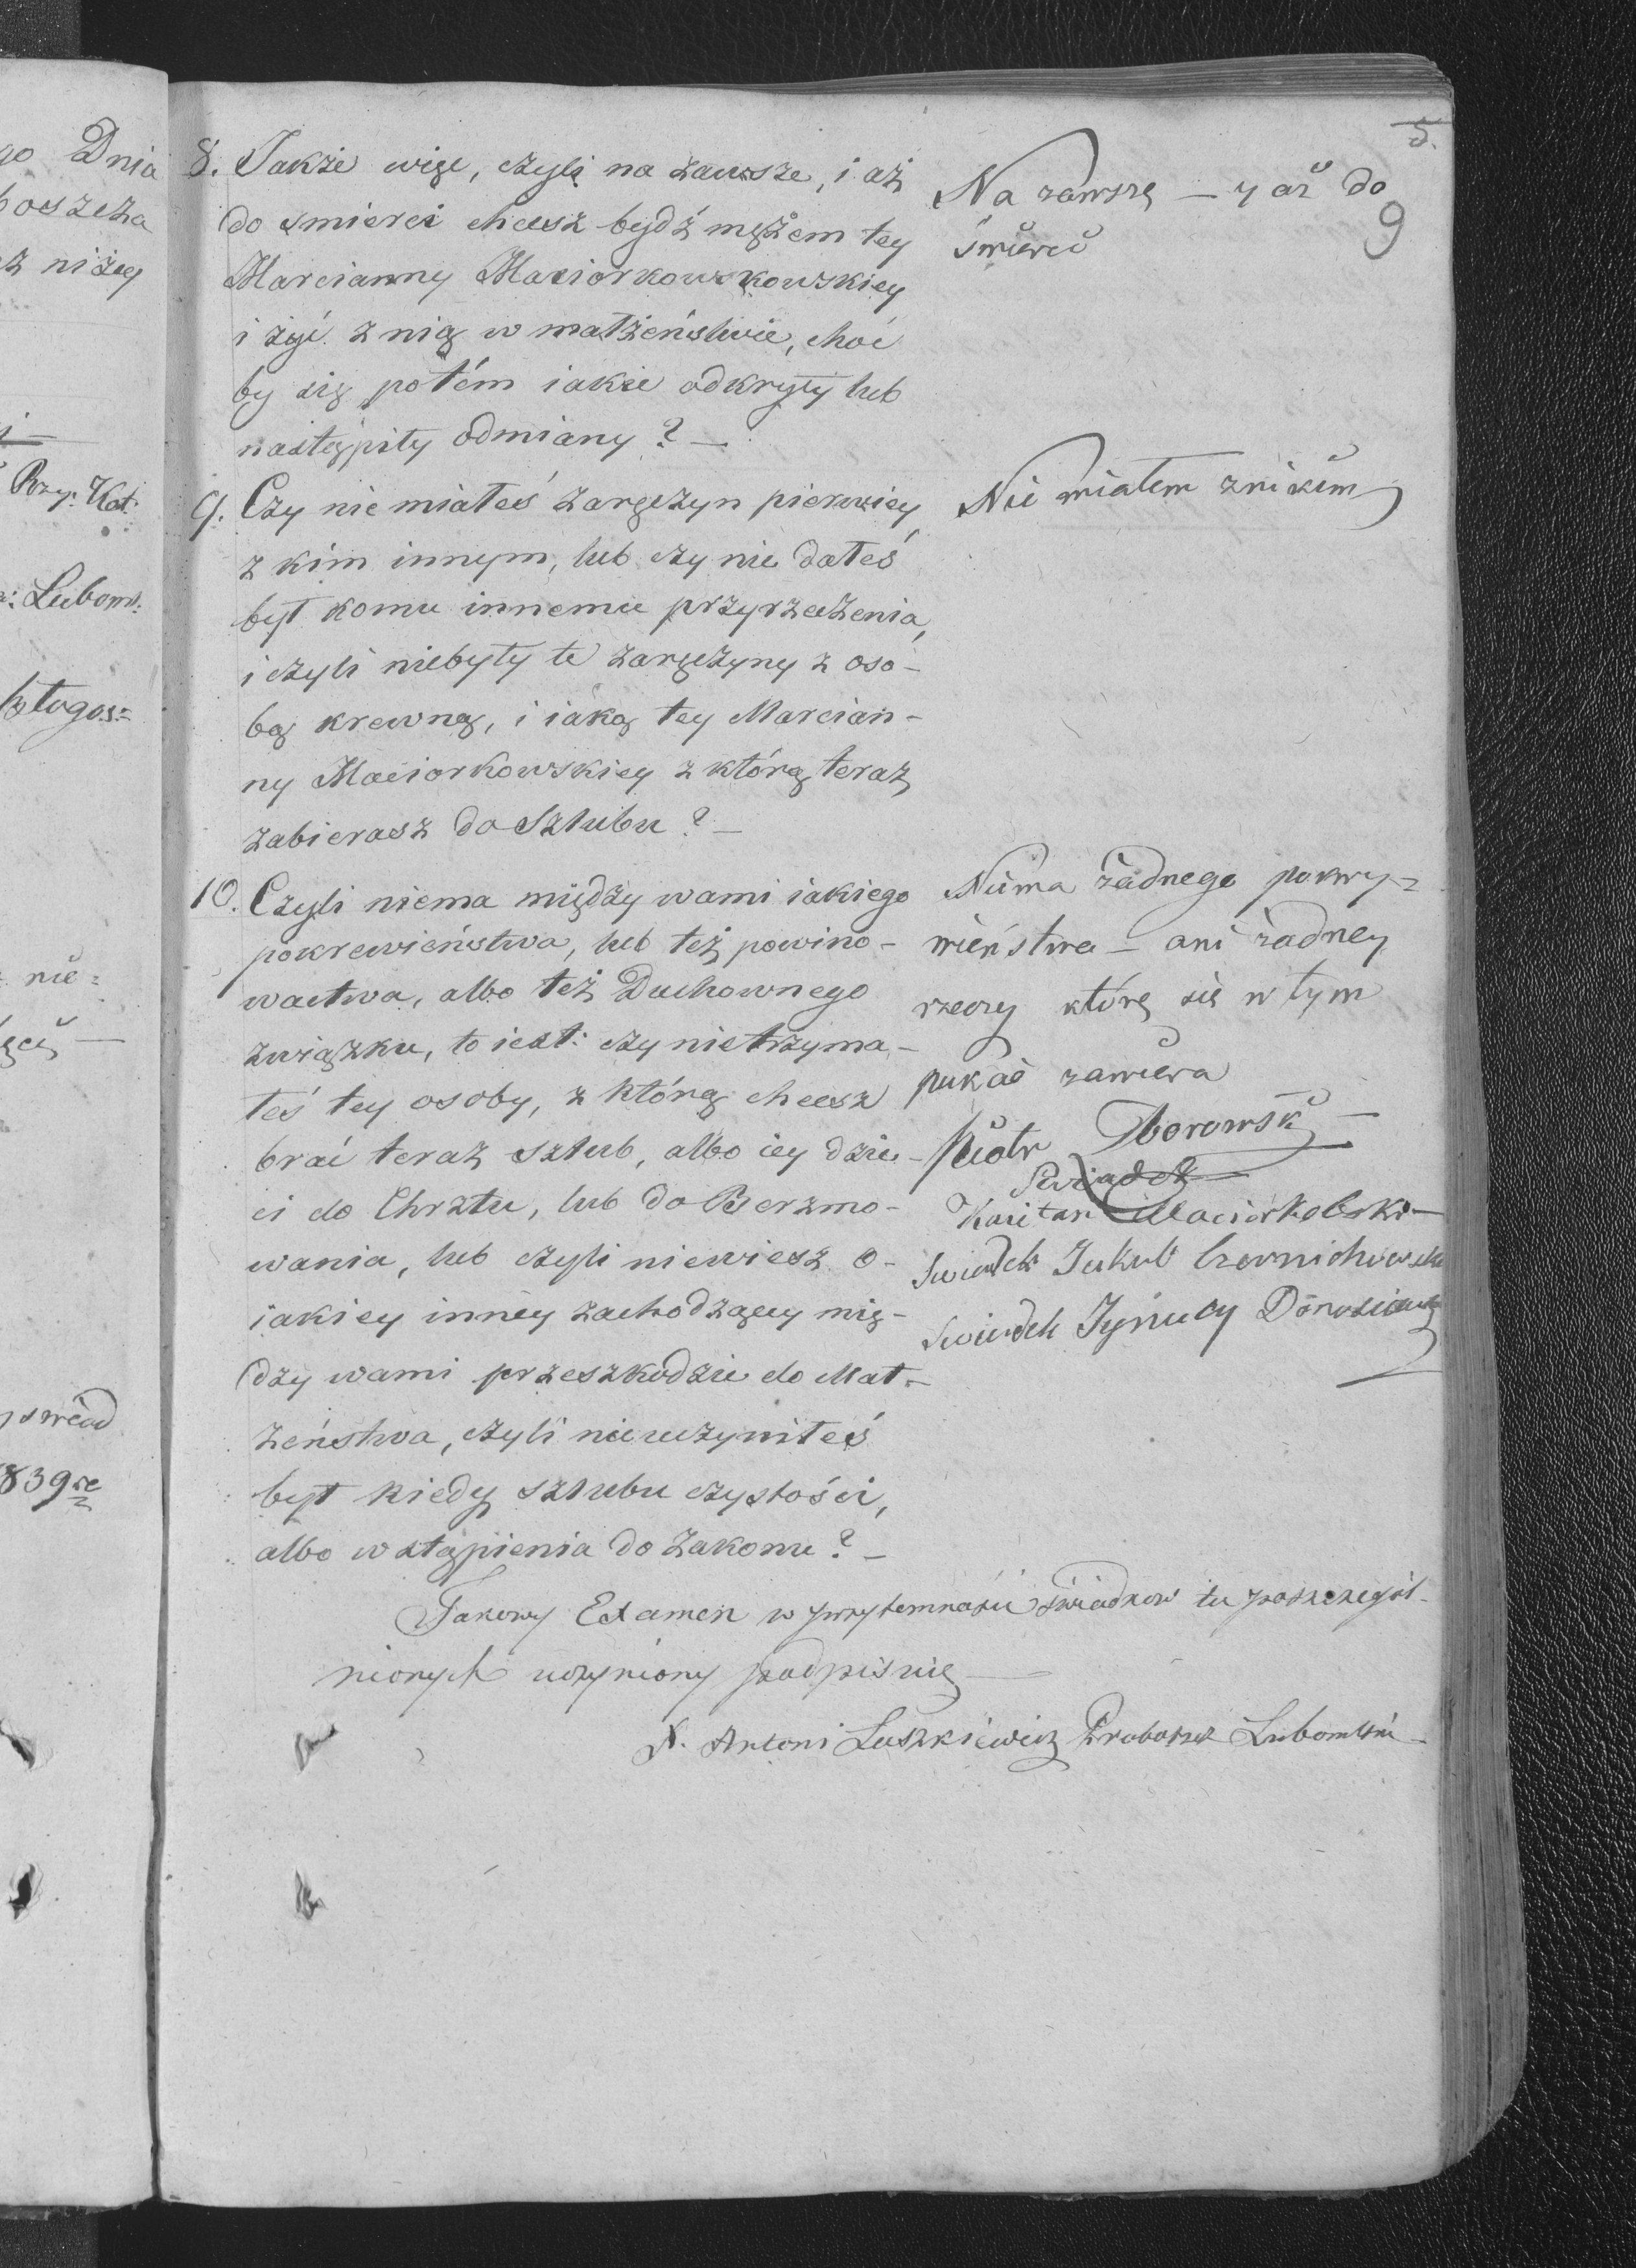 5.
9
8. Jakże więc, czyli na zawsze, i aż
do śmierci chcesz bydź mężem tey
Marcianny Maciorkowskowskiey
i żyć z nią w małżeństwie, choć
by się potém iakie odkryły lub
nastąpiły odmiany? —
Na zawszę — y aż do
śmierci
9. Czy nie miałeś zaręczyn pierwiey
z kim innym, lub czy nie dałeś
był komu innemu przyrzeczenia,
i czyli niebyły te zaręczyny z oso-
bą krewną, i iaką tey Marcian-
ny Maciorkowskiey z którą teraz
zabierasz do szlubu? —
Nie miałem znikim
10. Czyli niema między wami iakiego
pokrewieństwa, lub też powino-
wactwa, albo też Duchownego
związku, to iest: czy nietrzyma-
łeś tey osoby, z którą chcesz
brać teraz szlub, albo iey dzie-
ci do Chrztu, lub do Berzmo-
wania, lub czyli niewiesz o
iakiey inney zachodzącey mię-
dzy wami przeszkodzie do Mał-
żeństwa, czyli nieuczyniłeś
był kiedy szlubu czystości,
albo wstąpienia do zakonu? —
Niema żadnego pokry=
wieństwa — ani żadney
rzeczy którę się w tym
pukcie zawiera
Piotr Dborowski —
Swiadek
Kaietan Maciorkobski —
Swiadek Jakub Czernichowski
Swiadek Jgnacy
Takowy Examen w przytemnosci świadkow tu poszczegól-
nionych uczyniony podpisuię —
X. Antoni Luszkiewicz Proboszcz Lubomlski —
go Dnia
boszcza
z niżey
Rzy: Kat:
Lubom:
błogos:=
nie=
swiad
839 re